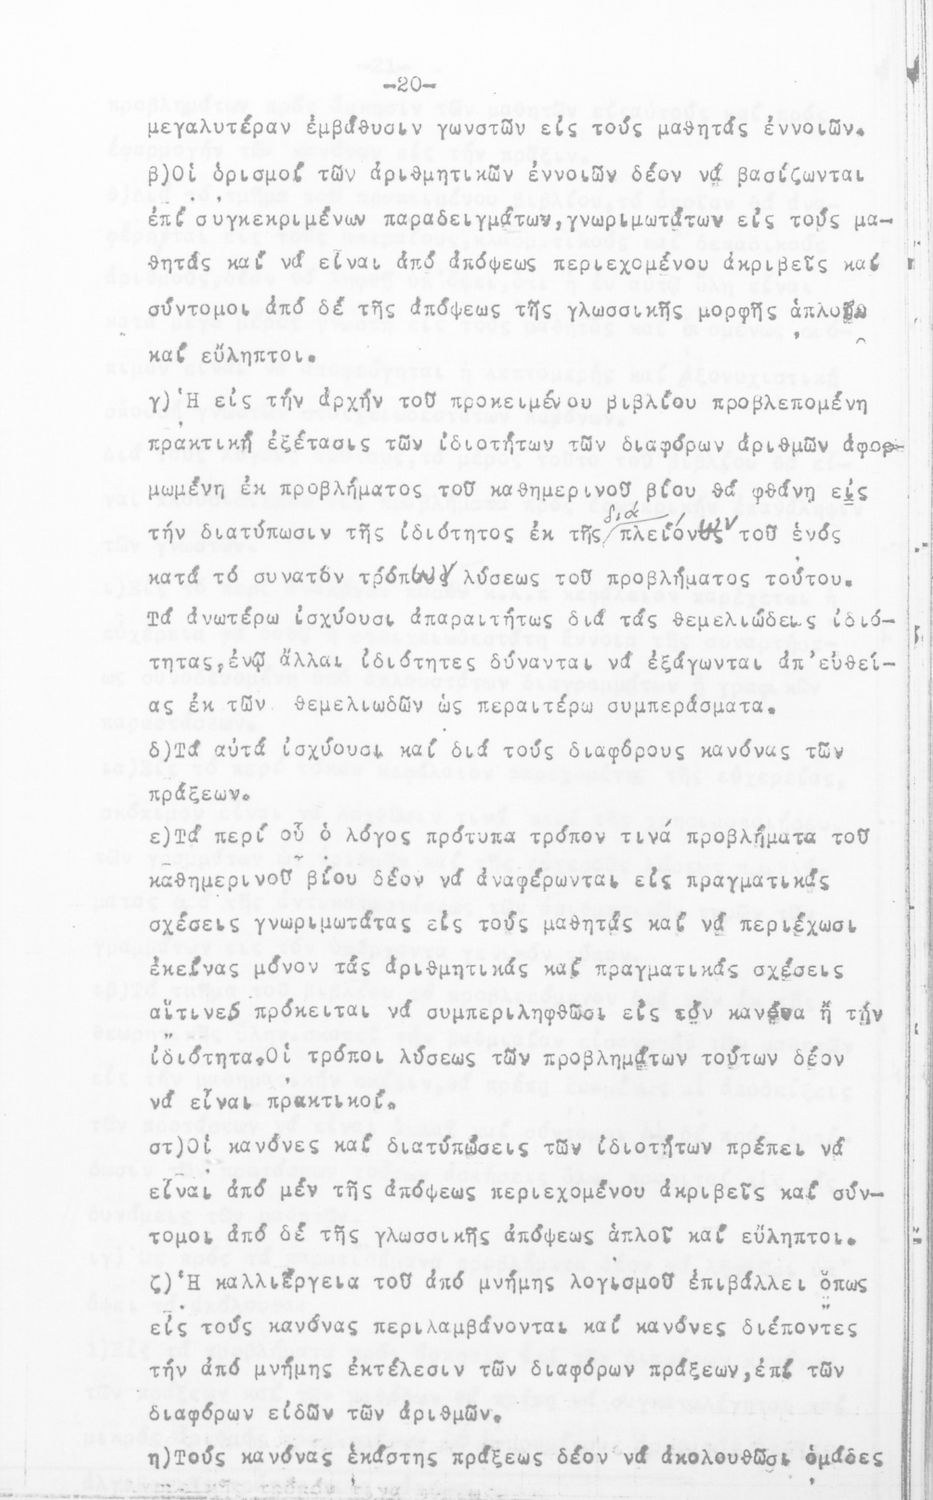 -20-
μεγαλυτέραν ἐμβάθυσιν γωνστῶν εἰς τούς μαθητάς ἐννοιῶν.
β)Οἱ ὁρισμοί τῶν ἀριθμητικῶν ἐννοιῶν δέον νά βασίζωνται
ἐπί συγκεκριμένων παραδειγμάτων,γνωριμωτάτων εἰς τούς μα-
θητάς καί νά εἶναι ἀπό ἀπόψεως περιεχομένου ἀκριβεῖς καί
σύντομοι ἀπό δέ τῆς ἀπόψεως τῆς γλωσσικῆς μορφῆς ἁπλοῖ
καί εὔληπτοι.
γ)Ἡ εἰς τήν ἀρχήν τοῦ προκειμένου βιβλίου προβλεπομένη
πρακτική ἐξέτασις τῶν ἰδιοτήτων τῶν διαφόρων ἀριθμῶν ἀφορ-
μωμένη ἐκ προβλήματος τοῦ καθημερινοῦ βίου θά φθάνῃ εἰς
τήν διατύπωσιν τῆς ἰδιότητος ἐκ τῆς διά πλειόνων τοῦ ἑνός
κατά τό συνατόν τρόπων λύσεως τοῦ προβλήματος τούτου.
Τά ἀνωτέρω ἰσχύουσι ἀπαραιτήτως διά τάς θεμελιώδεις ἰδιό-
τητας,ἐνῷ ἄλλαι ἰδιότητες δύνανται νά ἐξάγωνται ἀπ'εὐθεί-
ας ἐκ τῶν θεμελιωδῶν ὡς περαιτέρω συμπεράσματα.
δ)Τά αὐτά ἰσχύουσι καί διά τούς διαφόρους κανόνας τῶν
πράξεων.
ε)Τά περί οὗ ὁ λόγος πρότυπα τρόπον τινα προβλήματα τοῦ
καθημερινοῦ βίου δέον νά ἀναφέρωνται εἰς πραγματικάς
σχέσεις γνωριμωτάτας εἰς τούς μαθητάς καί νά περιέχωσι
ἐκείνας μόνον τάς ἀριθμητικάς καί πραγματικάς σχέσεις
αἵτινες πρόκειται νά συμπεριληφθῶσι εἰς τόν κανόνα ἤ τήν
ἰδιότητα.Οἱ τρόποι λύσεως τῶν προβλημάτων τούτων δέον
νά εἶναι πρακτικοί.
στ)Οἱ κανόνες καί διατύπώσεις τῶν ἰδιοτήτων πρέπει νά
εἶναι ἀπό μέν τῆς ἀπόψεως περιεχομένου ἀκριβεῖς καί σύν-
τομοι ἀπό δέ τῆς γλωσσικῆς ἀπόψεως ἁπλοῖ καί εὔληπτοι.
ζ)Ἡ καλλιέργεια τοῦ ἀπό μνήμης λογισμοῦ ἐπιβάλλει ὅπως
εἰς τούς κανόνας περιλαμβάνονται καί κανόνες διέποντες
τήν ἀπό μνήμης ἐκτέλεσιν τῶν διαφόρων πράξεων,ἐπί τῶν
διαφόρων εἰδῶν τῶν ἀριθμῶν.
η)Τούς κανόνας ἑκάστης πράξεως δέον νά ἀκολουθῶσι ὁμάδες